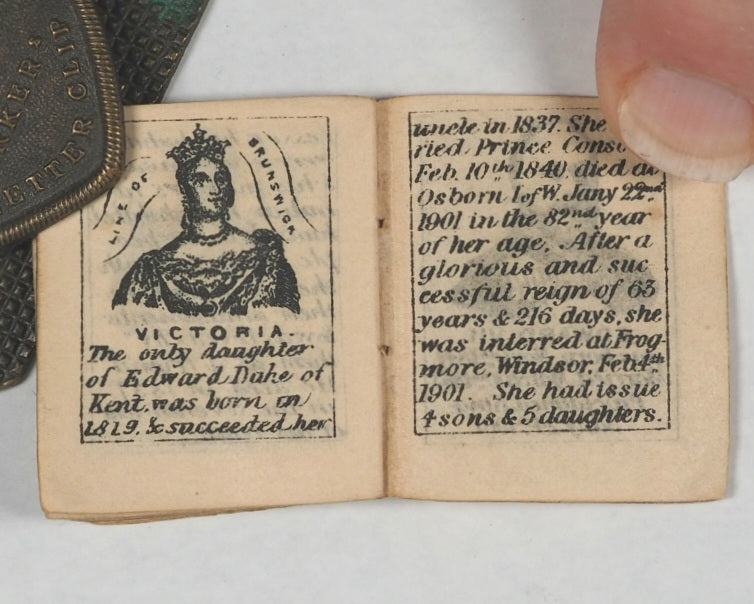 LETTER CLIP
LINE OF
BRUNSWICK
VICTORIA.
The only daughter
of Edward Duke of
Kent, was born in
1819. & succeeded her
uncle in 1837. She
ried Prince
Feb. 10th 1840, died at
Osborn I. of W. Jany 22nd
1901 in the 82nd year
of her age. After a
glorious and suc
cessful reign of 63
years & 216 days, she
was interred at Frog-
more, Windsor, Feb 4th
1901. She had issue
4 sons & 5 daughters.